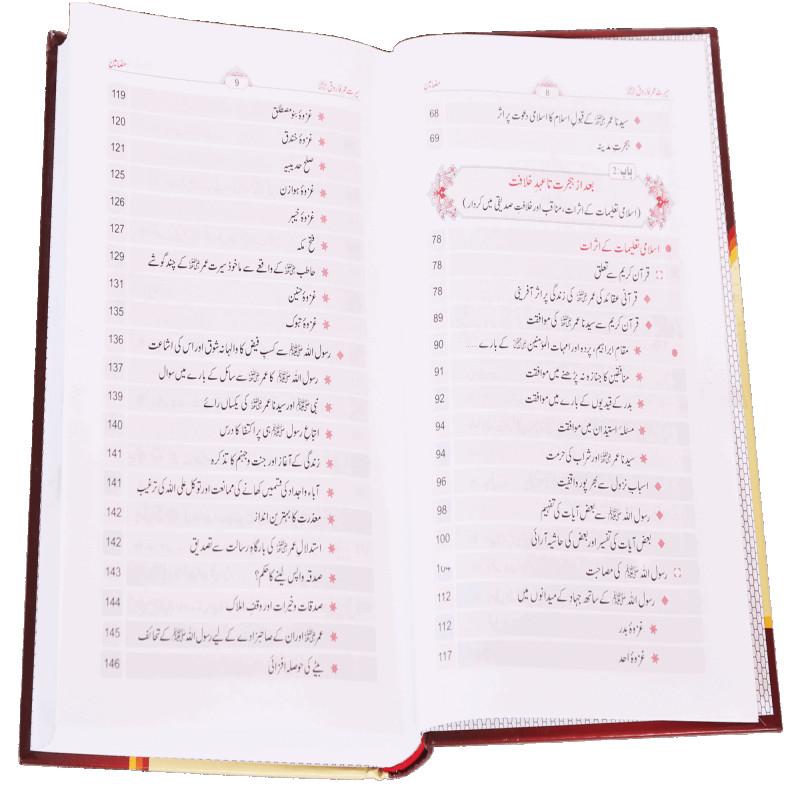 سیرت عمر فاروق ؓ 8 مضامین
سیدنا عمر ؓ کے قبولِ اسلام کا اسلامی دعوت پر اثر 68
ہجرت مدینہ 69
باب: 2
بعد از ہجرت تا عہد خلافت
(اسلامی تعلیمات کے اثرات، مناقب اور خلافتِ صدیقی میں کردار)
اسلامی تعلیمات کے اثرات 78
قرآن کریم سے تعلق 78
قرآنی عقائد کی عمر ؓ کی زندگی پر اثر آفرینی 78
قرآن کریم سے سیدنا عمر ؓ کی موافقت 89
مقام ابراہیم، پردہ اور امہات المؤمنین ؓ کے بارے ...... 90
منافقین کا جنازہ نہ پڑھنے میں موافقت 91
بدر کے قیدیوں کے بارے میں موافقت 92
مسئلہ استیذان میں موافقت 94
سیدنا عمر ؓ اور شراب کی حرمت 94
اسباب نزول سے بھرپور واقفیت 96
رسول اللہ ﷺ سے بعض آیات کی تفہیم 98
بعض آیات کی تفسیر اور بعض کی حاشیہ آرائی 100
رسول اللہ ﷺ کی مصاحبت 104
رسول اللہ ﷺ کے ساتھ جہاد کے میدانوں میں 112
غزوۂ بدر 112
غزوۂ احد 117
سیرت عمر فاروق ؓ 9 مضامین
غزوۂ بنو مصطلق 119
غزوۂ خندق 120
صلح حدیبیہ 121
غزوۂ ہوازن 125
غزوۂ خیبر 126
فتح مکہ 127
حاطب ؓ کے واقعے سے ماخوذ سیرت عمر ؓ کے چند گوشے 129
غزوۂ حنین 131
غزوۂ تبوک 135
رسول اللہ ﷺ سے کسب فیض کا والہانہ شوق اور اس کی اشاعت 136
رسول اللہ ﷺ کا عمر ؓ سے سائل کے بارے میں سوال 137
نبی ﷺ اور سیدنا عمر ؓ کی یکساں رائے 139
اتباع رسول ﷺ ہی پر اکتفا کا درس 140
زندگی کے آغاز اور جنت و جہنم کا تذکرہ 141
آباء واجداد کی قسمیں کھانے کی ممانعت اور توکل علی اللہ کی ترغیب 141
معذرت کا بہترین انداز 142
استدلال عمر ؓ کی بارگاہ رسالت سے تصدیق 142
صدقہ واپس لینے کا حکم؟ 143
صدقات و خیرات اور وقف املاک 144
عمر ؓ اور ان کے صاحبزادے کے لیے رسول اللہ ﷺ کے تحائف 145
بیٹے کی حوصلہ افزائی 146